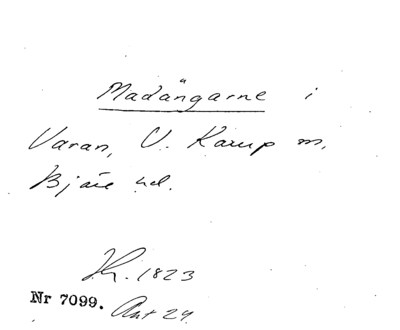 Madängarne i
Varan, V. Karup m,
Bjäre hd.
1823
Nr 7099. Ant 29